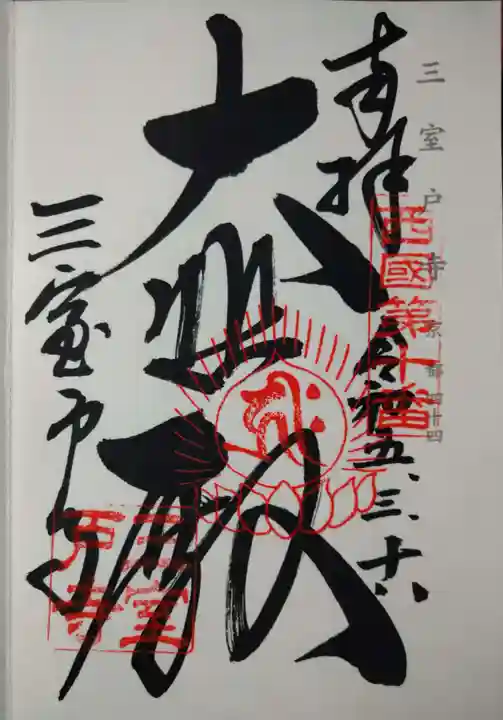 三室戸寺 京都 四十四
奉拝
令和五、三、十六
西國第十番
大悲殿
三室戸寺
三室
戸寺